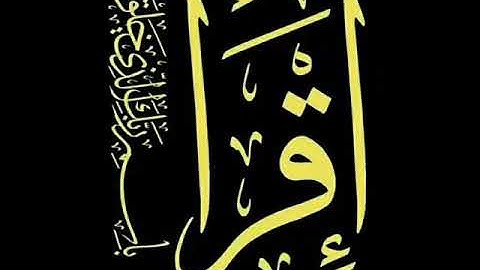 إقرأ
باسم ربك الذي خلق